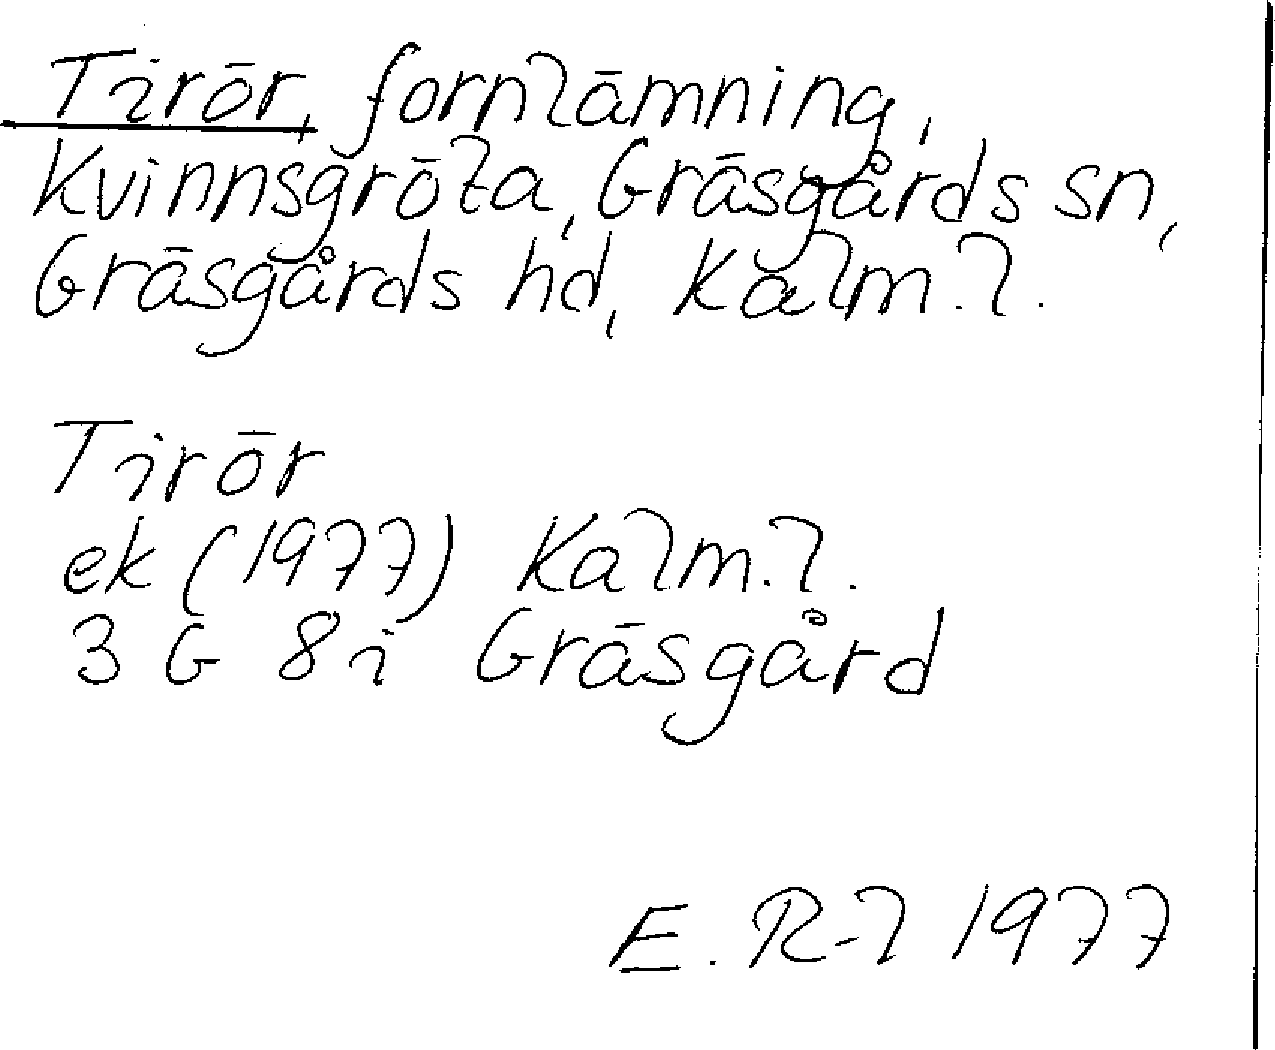 Tirör, fornlämning,
Kvinnsgröta, Gräsgårds sn,
Gräsgårds hd, Kalm. l.
Tirör
ek (1977) Kalm. l.
3 G 8 i Gräsgård
E. R-l 1977